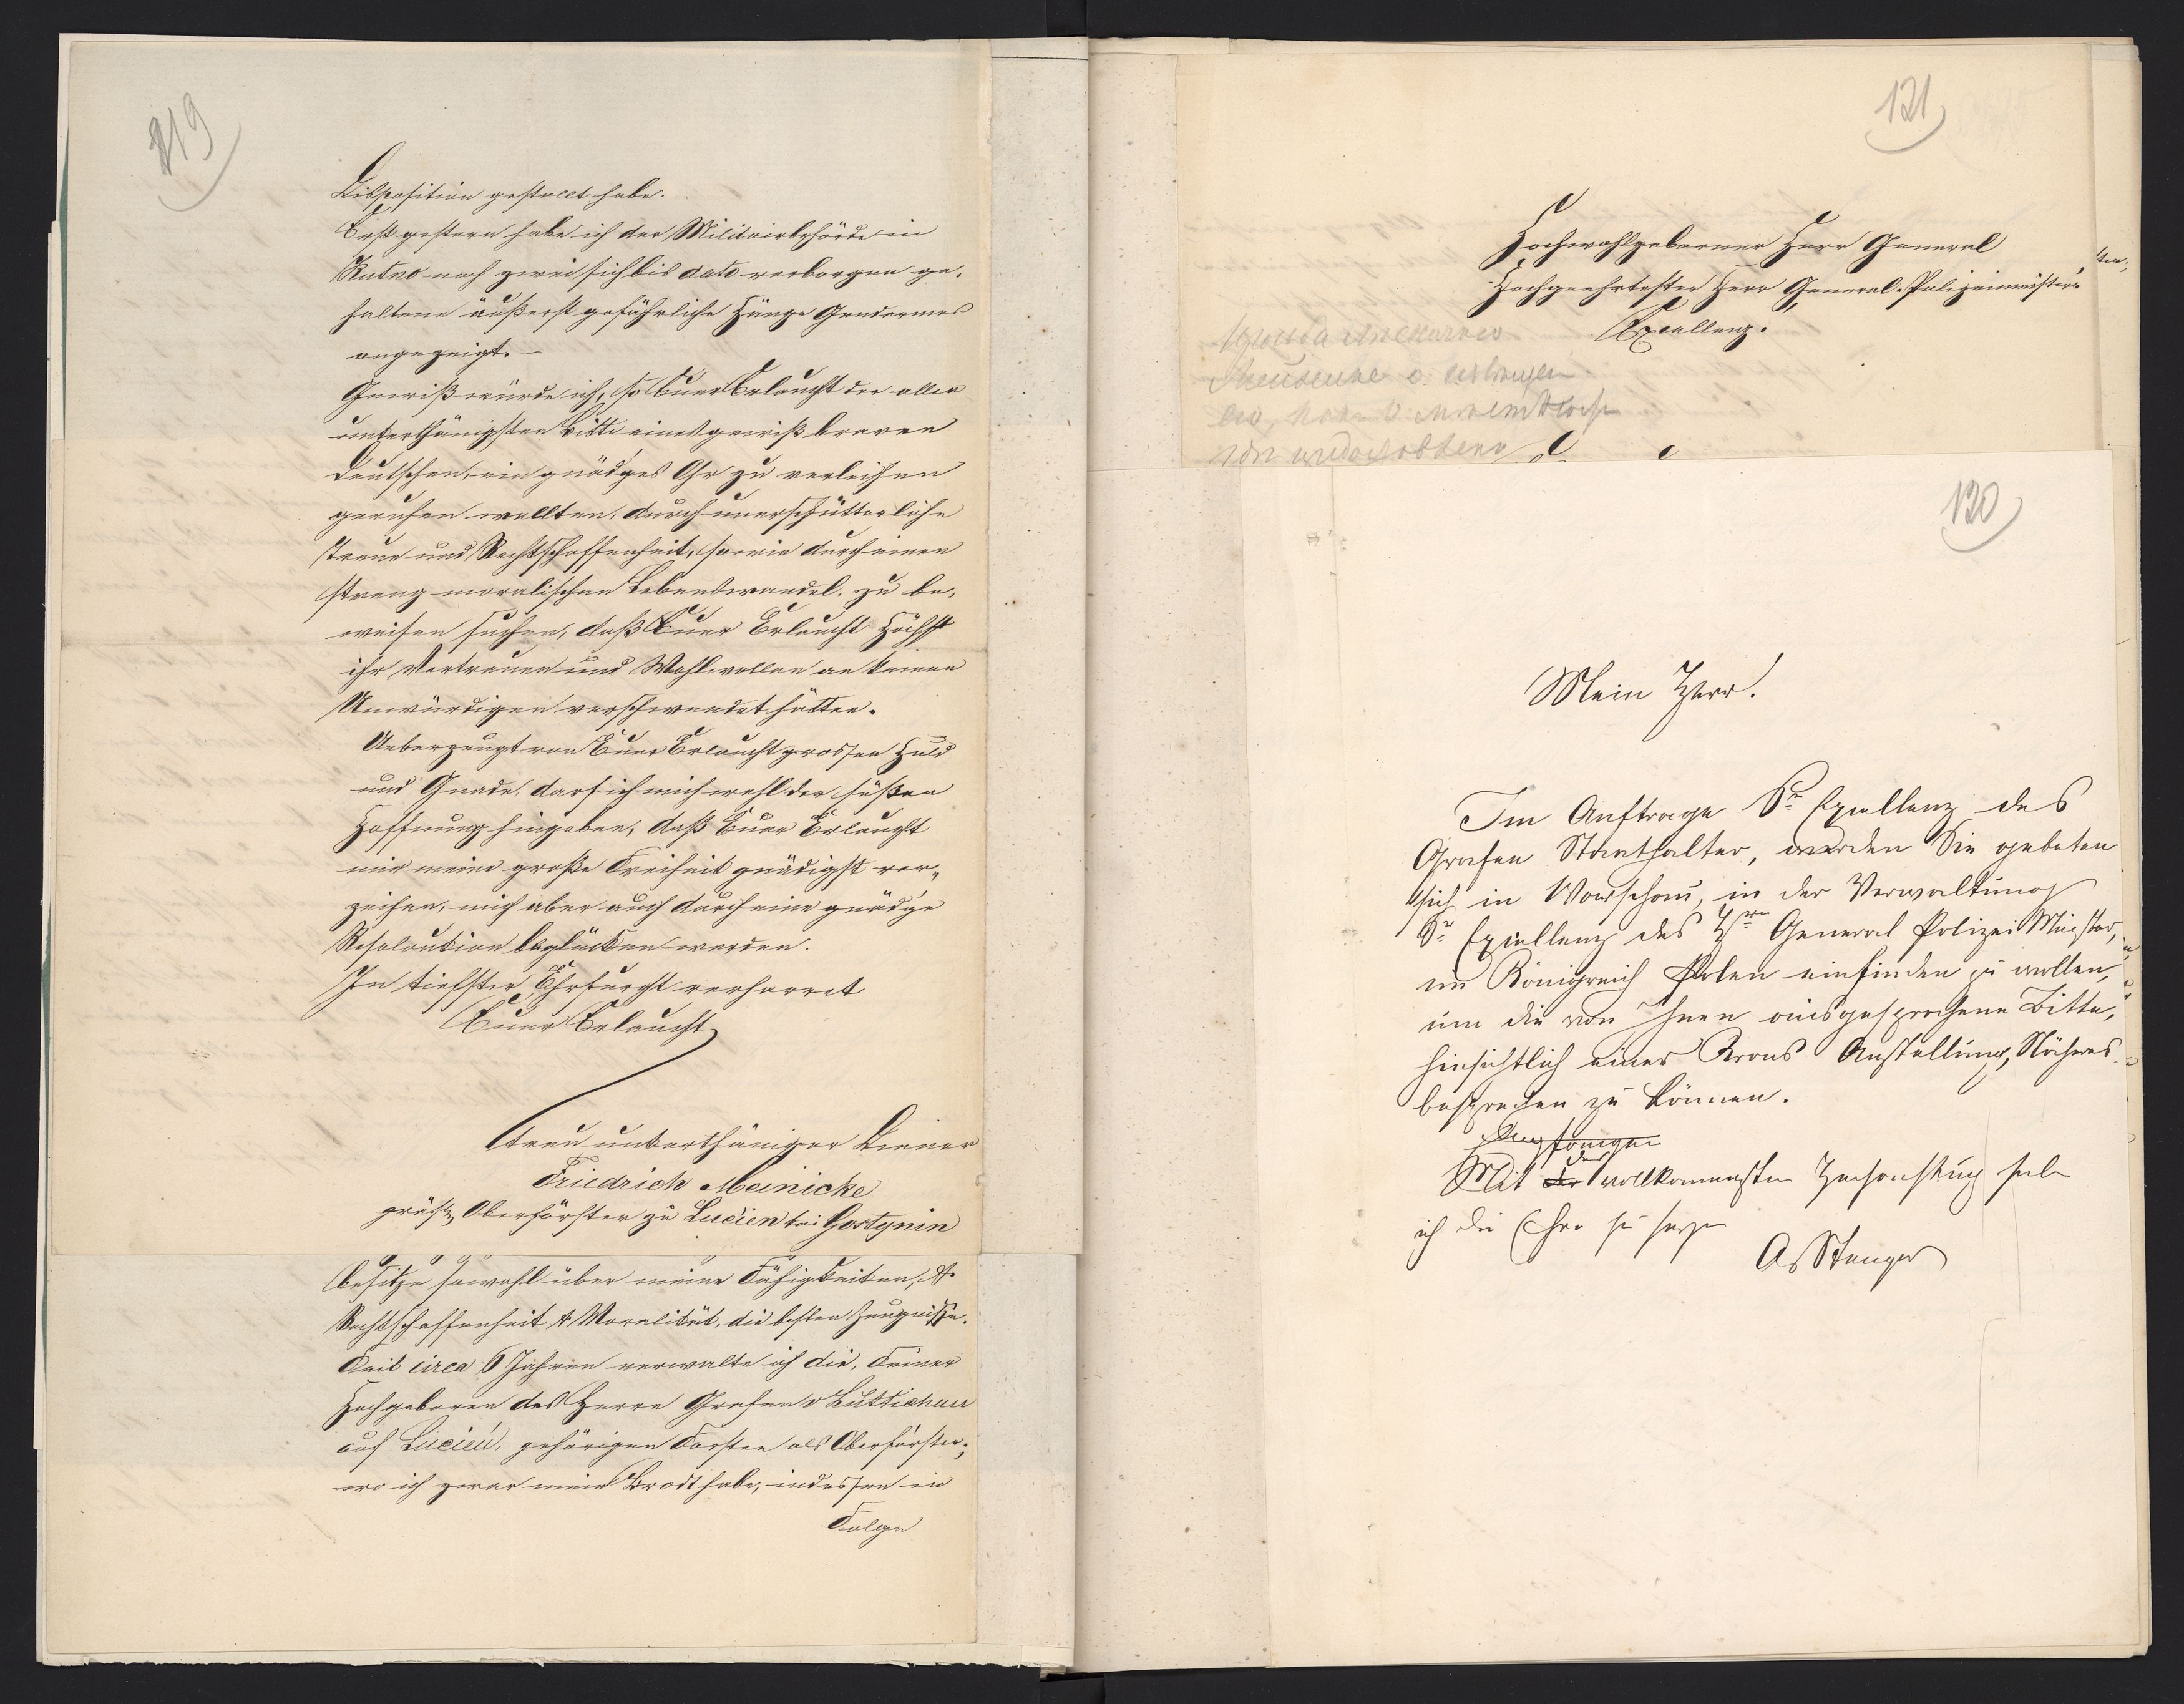 219
Disposition gestellt habe.
Erst gestern habe ich der Militairbehörde in
Kutno noch zwei sich bis dato verborgen ge-
haltene äußerst gefährliche Hänge Gendarmes
angezeigt. –
Gewiß würde ich, so Euer Erlaucht der aller
unterthänigsten Bitte eines gewiß braven
Deutschen, ein gnädges Ohr zu verleihen
geruhen wollten, durch unerschütterliche
Treue und Rechtschaffenheit, sowie durch einen
streng moralischen Lebenswandel, zu be-
weisen suchen, daß Euer Erlaucht Höchst
ihr Vertrauen und Wohlwollen an keinen
Unwürdigen verschwendet hätten.
Ueberzeugt von Euer Erlaucht grossen Huld
und Gnade, darf ich mich wohl der süßen
Hoffnung hingeben, daß Euer Erlaucht
mir meine große Freiheit gnädigst ver-
zeihen, mich aber auch durch eine gnädge
Resoloution beglücken werden.
In tiefster Ehrfurcht verharret
Euer Erlaucht
treu unterthäniger Diener
Friedrich Meinicke
gräfl. Oberförster zu Lucien bei Gostynin
besitze sowohl über meine Fähigkeiten, &
Rechtschaffenheit & Moralität, die besten Zeugnisse.
Seit circa 6 Jahren verwalte ich die, Seiner
Hochgeboren des Herrn Grafen v Lüttichau
auf Lucień, gehörigen Forsten als Oberförster;
wo ich zwar mein Brodt habe, indessen in
Folge
121
Hochwohlgeborner Herr General
Hochgeehrtester Herr General-Polizeimeister
Excellenz.
120
Mein Herr!
Im Auftrage Sr Excellenz des
Grafen Statthalter, werden Sie gebeten
sich in Warschau, in der Verwaltung
Sr Excellenz des Hrn General Polizei Meister,
im Königreich Polen einfinden zu wollen,
um die von Ihnen ausgesprochene Bitte,
hinsichtlich einer Krons Anstellung, Näheres
besprechen zu können.
Mit der vollkommensten Hochachtung habe
ich die Ehre zu sein
A Stenger